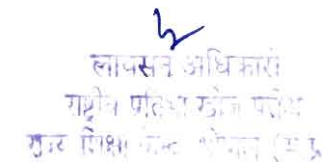 लायसन अधिकारी
राष्ट्रीय प्रतिभा खोज परीक्षा
राज्य शिक्षा केन्द्र भोपाल (म.प्र.